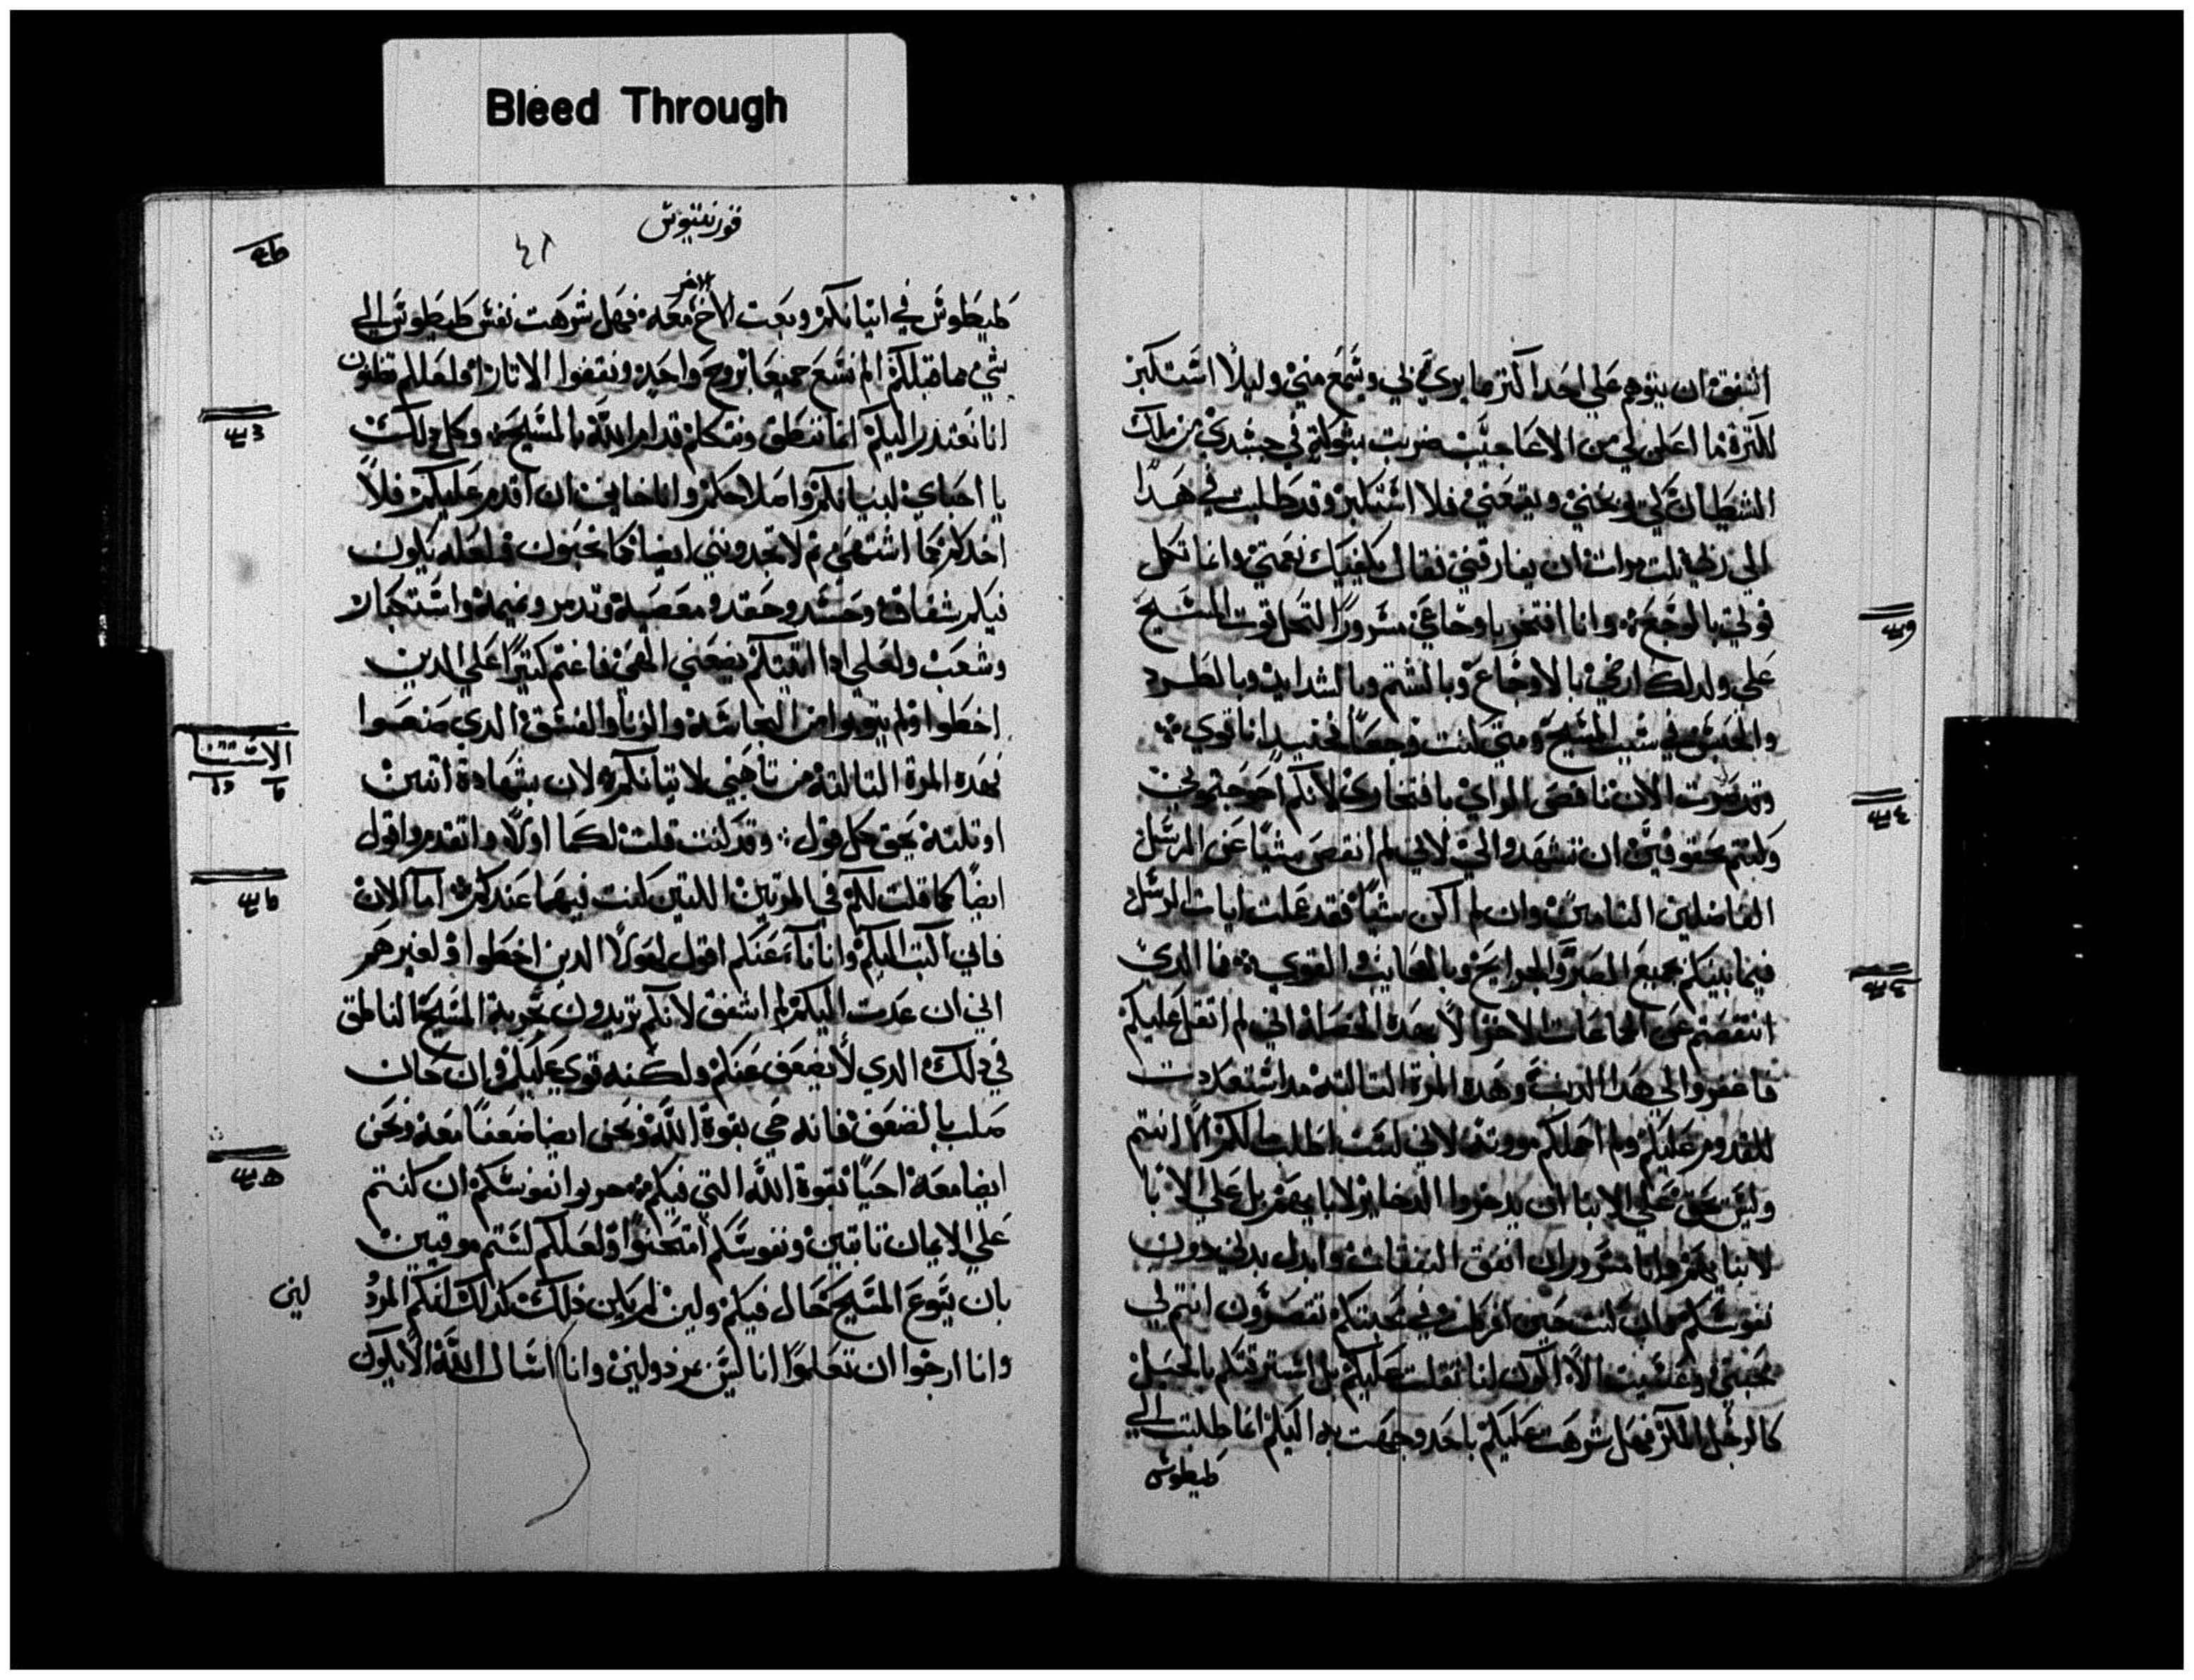 Bleed Through
اشفق ان يتوهم علي احد اكتر ما يري في ويسمع مني وليلا استكبر
لكترة ما اعلن لي من الاعاجيب ضربت بشوكة في جسدي من ملاك
الشيطان لكي ويقمعني فلا استكبر وقد طلبت في هدا
الي ربي تلت مرات ان يفارقني فقال يكفيك نعمتي وانما تكمل
قوتي بالوجع وانا افتخر باوجاعي مسرورا لتحل قوت المسيح
علي ولدلك ارضي بالاوجاع وبالشتم وبالشدايد وبالطرد
والحبس في سبب المسيح ومتي كنت وجعا فحنيد انا قوي
وقد صرت الان ناقص الراي بافتخاري لانكم احوجتموني
وكنتم محقوقين ان تشهدوا لي لاني لم انقص شيا عن الرسل
الفاضلين التامين وان لم اكن شيا فقد عملت ايات الرسل
فيما بينكم بجميع الصبر والجرايح وبالعجايب والقوي فما الدي
انتقصتم عن الجماعات الاخر الا بهده الخصلة اني لم اتقل عليكم
فاغفروا لي هدا الدنب وهده المرة التالتة مد استعديت
للقدوم عليكم ولم احملكم موونة لاني لست اطلب مالكم الا انتم
وليس يحق علي الابنا ان يدخروا الدخاير لابايهم بل علي الابا
لابنايهم وانا مسرور ان انفق النفقات وابدل بدني دون
نفوسكم وان كنت حين افرطت في محبتكم تقصرون انتم في
محبتي وعسيت الا اكون انا تقلت عليكم بل استرقتكم بالحيل
كالرجل المكر فهل شرهت عليكم باحد وجهت به اليكم انما طلبت الي
طيطوش
قورنتيوش
٤٢
طيطوش في اتيانكم وبعت الاخ الاخر معه فهل شرهت نفس طيطوش الي
شي مما قبلكم الم نسع جميعا بروح واحد ونقتفوا الاتار ام لعلكم تظنون
انا نعتدر اليكم انما ننطق ونتكلم قدام الله بالمسيح وكل دلك
يا احباي لبنيانكم واصلاحكم وانا خايف ان اقدم عليكم فلا
اجدكم كما اشتهي تم لا تجدونني ايضا كما تحبون فلعله يكون
فيكم شقاق وحسد وحقد ومعصية وتدمر ونميمة واستكبار
وشعب ولعلي ادا اتيتكم يضعني الهي فاغتم كتيرا علي الدين
اخطوا ولم يتوبوا من النجاسة والزنا والفسق الدي صنعوا
فهده المرة التالتة من تاهبي لاتيانكم لان بشهادة اتنين
او تلتة يحق كل قول وقد كنت قلت لكم اولا واتقدم واقول
ايضا كما قلت لكم في المرتين اللتين كنت فيهما عندكم اما الان
فاني اكتب اليكم وانا نا عنكم اقول لهولا الدين اخطوا ولغيرهم
اني ان عدت اليكم لم اشفق لانكم تريدون تجربة المسيح الناطق
في دلك الدي لا يضعف عنكم ولكنه قوي عليكم وان كان
صلب بالضعف فانه حي بقوة الله ونحن ايضا ضعفا معه ونحن
ايضا معه احيا بقوة الله التي فيكم جربوا نفوسكم ان كنتم
علي الايمان تابتين ونفوسكم امتحنوا ولعلكم لستم موقنين
بان يسوع المسيح حال فيكم ولين لم يكن دلك كدلك انكم المردو
لين
وانا ارجوا ان تعلموا انا ليس مردولين وانا اسال الله الا يكون
الاستتنا